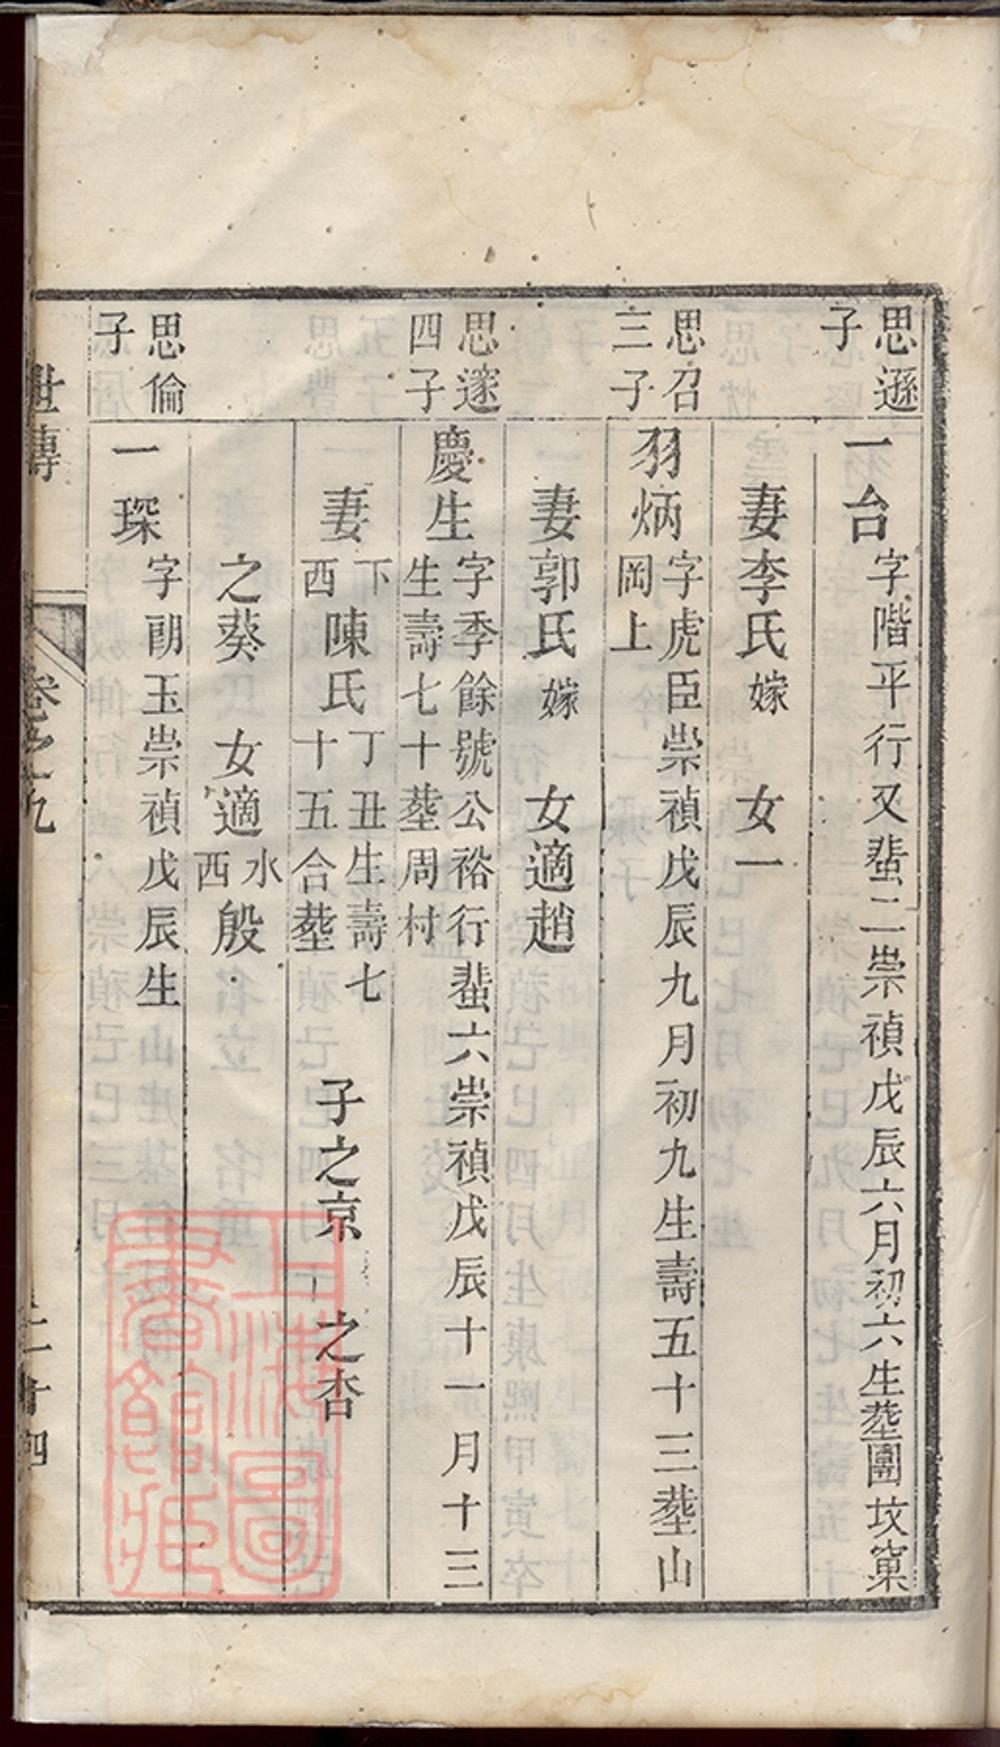 思遜子
一台 字階平行又蜚二崇禎戊辰六月初六生塟團坟窠
妻李氏嫁 女一
思召三子
羽炳 字虎臣崇禎戊辰九月初九生壽五十三塟山
岡上
妻郭氏嫁 女適趙
思邃四子
慶生 字季餘號公裕行蜚六崇禎戊辰十一月十三
生壽七十塟周村
妻下西陳氏丁丑生壽七十五合塟 子之京 之杏
之葵 女適水西殷
思倫子
一琛 字朗玉崇禎戊辰生
世傳 卷之九
上海圖書館藏